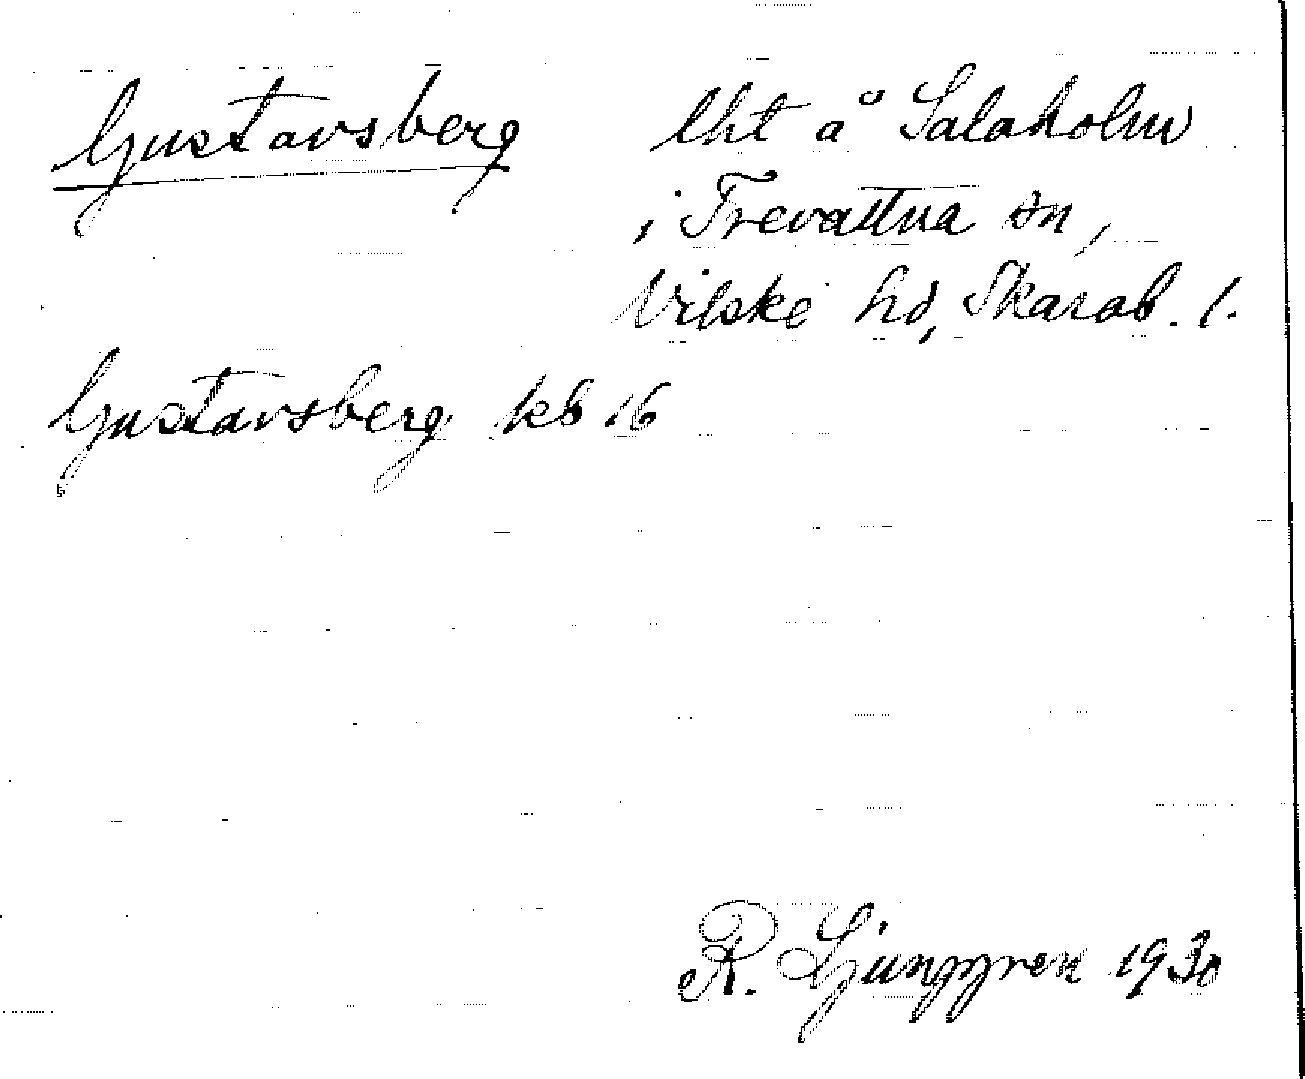 Gustavsberg lht å Salaholm
i Trevattna sn,
Vilske hd, Skarab. l.
Gustavsberg kb 16
R. Ljunggren 1930